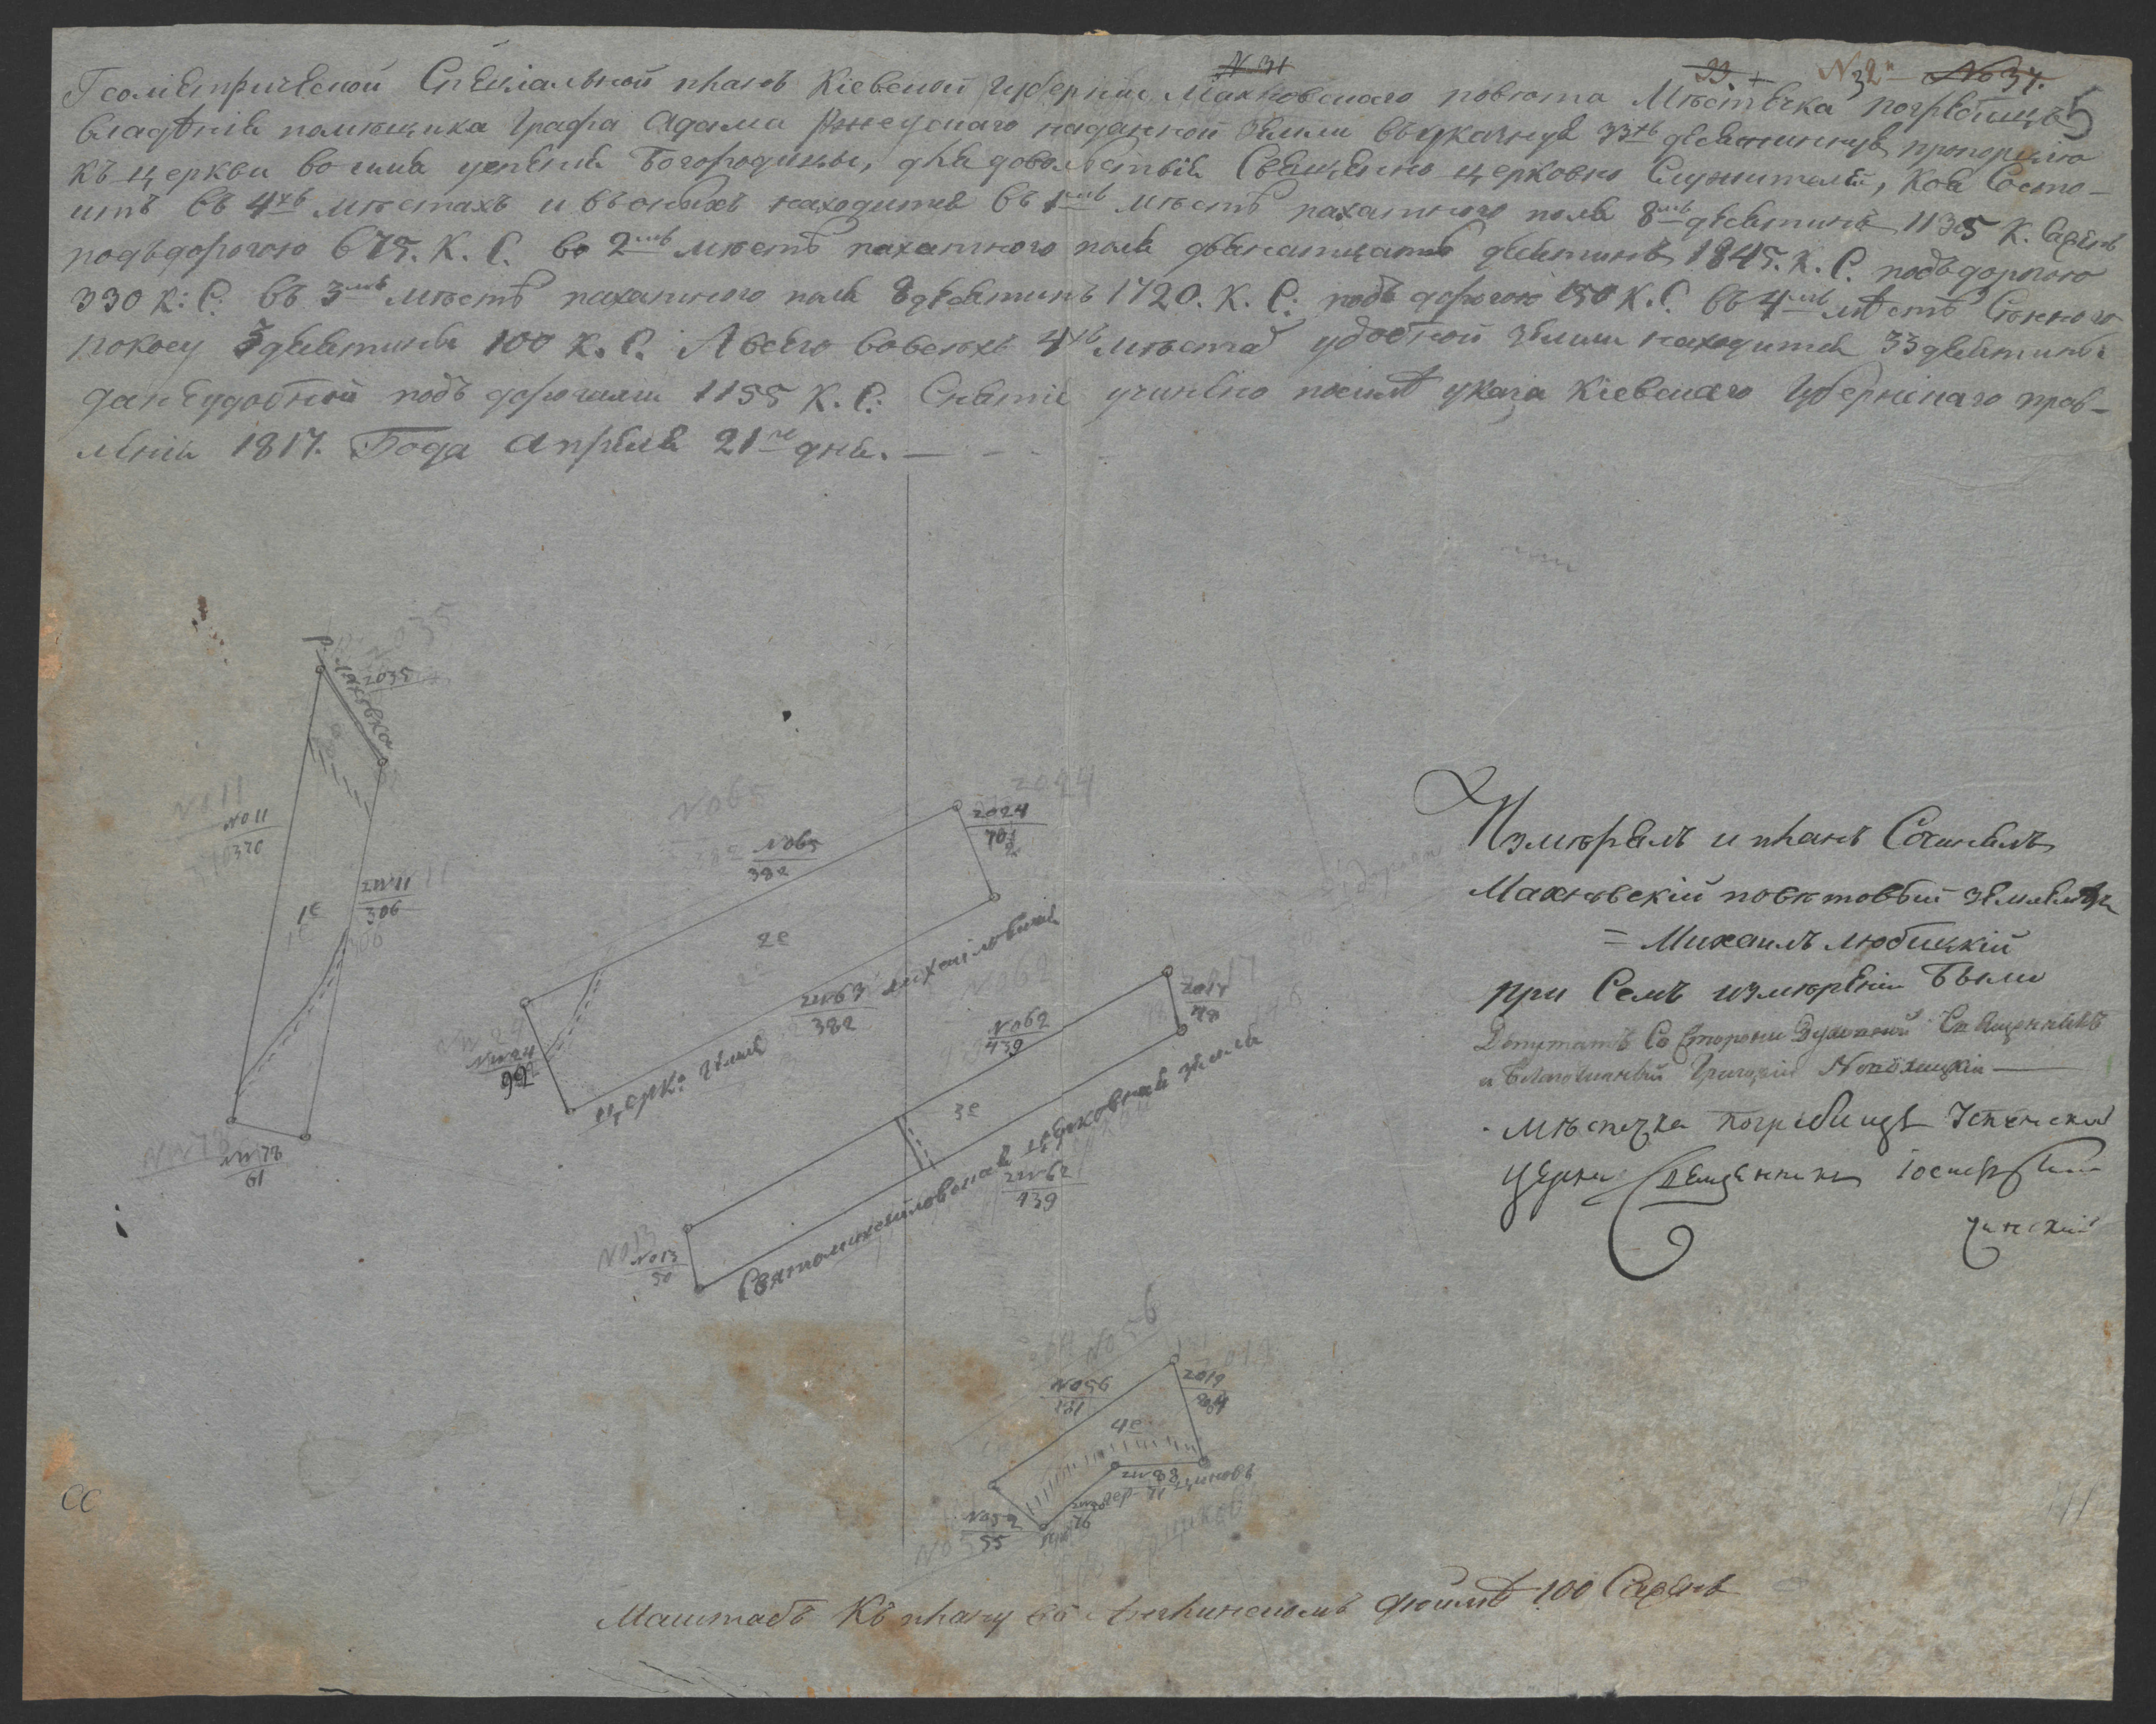 N 31
33
N 32
No 37.
5
Геометрической Специальной планъ Кіевской Губерніи Махновскаго повета Местечка погребищъ
владѣнія помещика Графа Адама Ржевускаго наданной земли въ указную 33хъ десятинную пропорцію
къ церкви во имя успенія Богородицы, для довольствія Священно церковно Служителей, Коя Состо-
итъ въ 4хъ местахъ и въ оныхъ находится въ 1мъ местѣ пахатного поля 8мь десятинъ 1135 К. Сажень
подъ дорогою 675. К. С. во 2мъ местѣ пахатного поля двенатцать десятинъ 1845. К. С. подъ дорогою
330 К: С. въ 3мъ местѣ пахатного поля 8 десятинъ 1720. К. С: подъ дорогою 150 К. С. въ 4мъ местѣ Сенного
покосу 3 десятины 100 К. С. А всего вовсехъ 4хъ места удобной земли находится 33 десятины
да неудобной подъ дорогами 1155 К. С: Снятіе учинено после указа Кіевскаго Губернскаго прав-
ленія 1817. Года Апреля 21го дня. —
р. Ляховка
2035
No 11
370
1е
306
78
61
No 65
382
2024
70
2е
63
382
24
92
церк: земля михайловская
No 62
439
2017
78
3е
62
439
No 13
50
Святомихайловская церковная земля
No 56
181
2019
84
4е
83
76
No 52
55
Измерялъ и планъ Сочинялъ
Махновскій поветовый землемѣръ
= Михаилъ Любицкій
при Семъ измереніи Были
Депутатъ Со Стороны Духовной Священникъ
и Благочинный Григорій
местечка погребищъ Успенской
церкви Священникъ Іосифъ
Маштабъ Къ плану въ Англинскомъ дюймѣ 100 Сажень